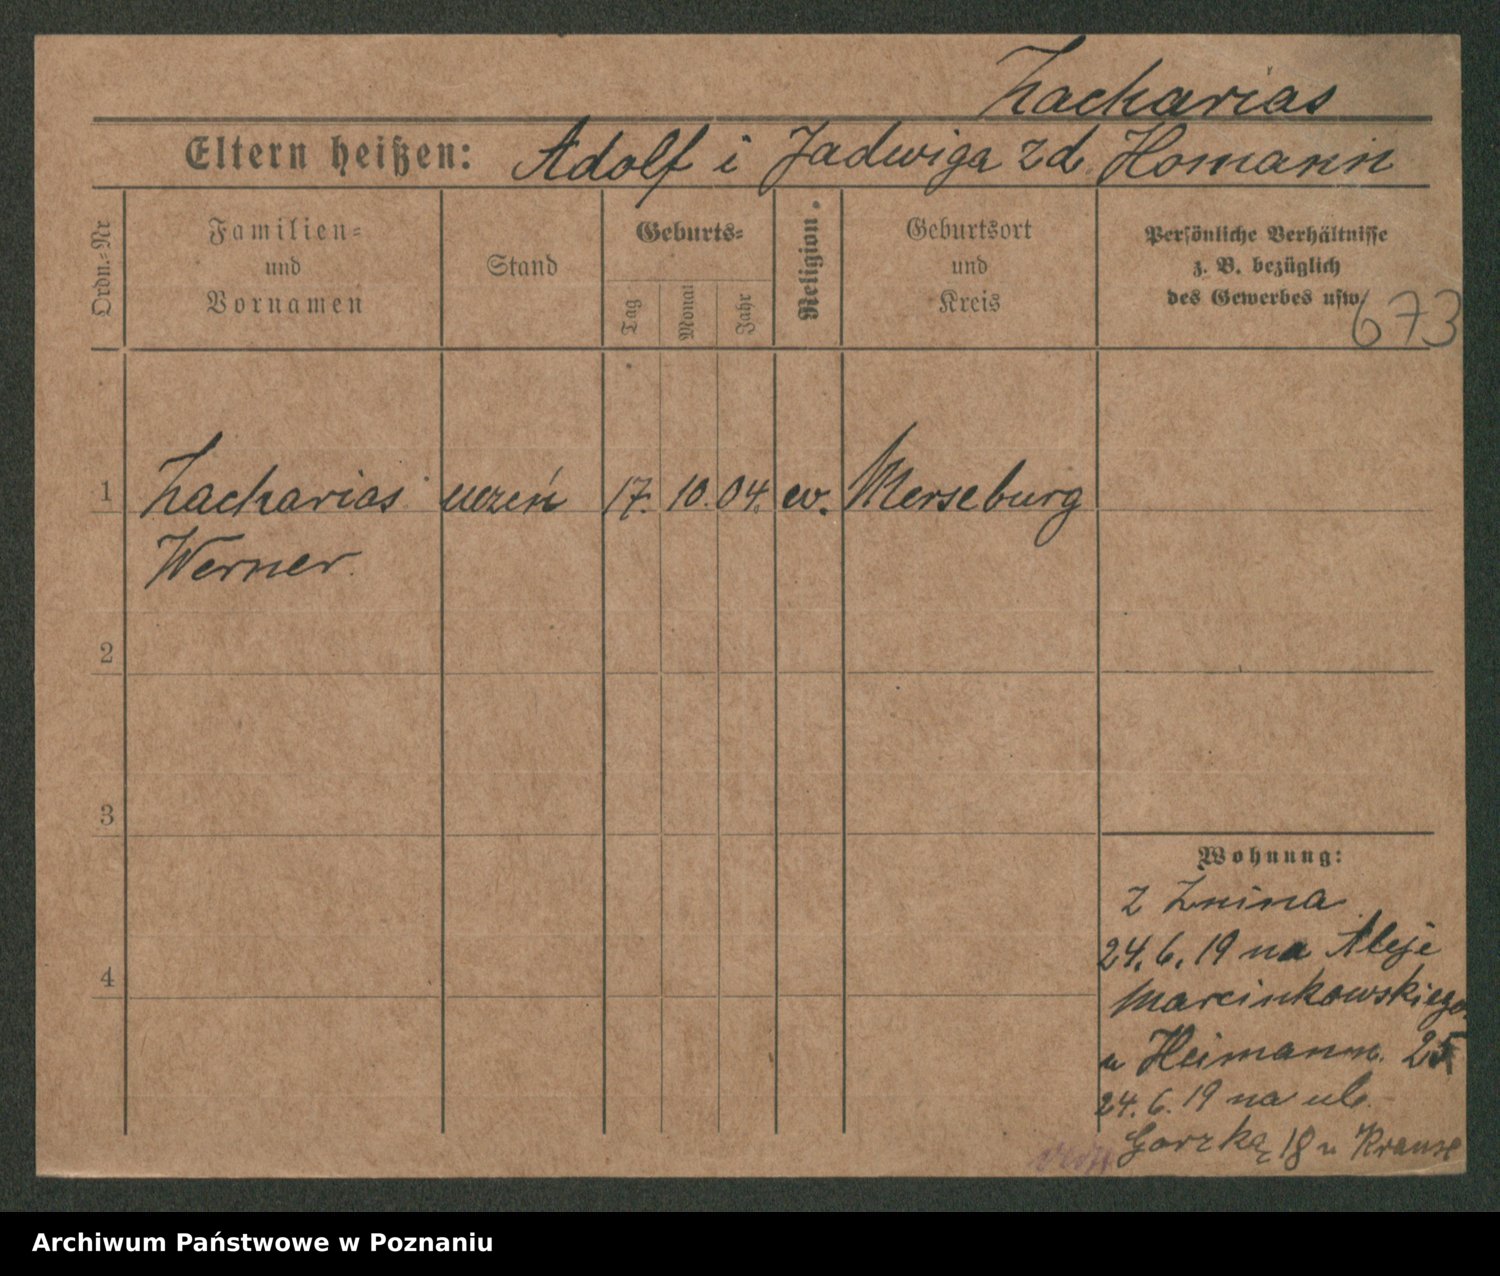 Zacharias
Eltern heißen: Adolf i Jadwiga zd. Homann
Ordn.-Nr
Familien-
und
Vornamen
Stand
Geburts-
Tag
Monat
Jahr
Religion.
Geburtsort
und
Kreis
Persönliche Verhältnisse
z. B. bezüglich
des Gewerbes usw.
673
1 Zacharias uczeń 17. 10. 04. ew. Merseburg
Werner.
2
3
4
Wohnung:
z Znina
24. 6. 19 na Aleje
Marcinkowskiego
u Heimann. 25
24. 6. 19 na ul.
Gorzką 18 u Krause
Archiwum Państwowe w Poznaniu